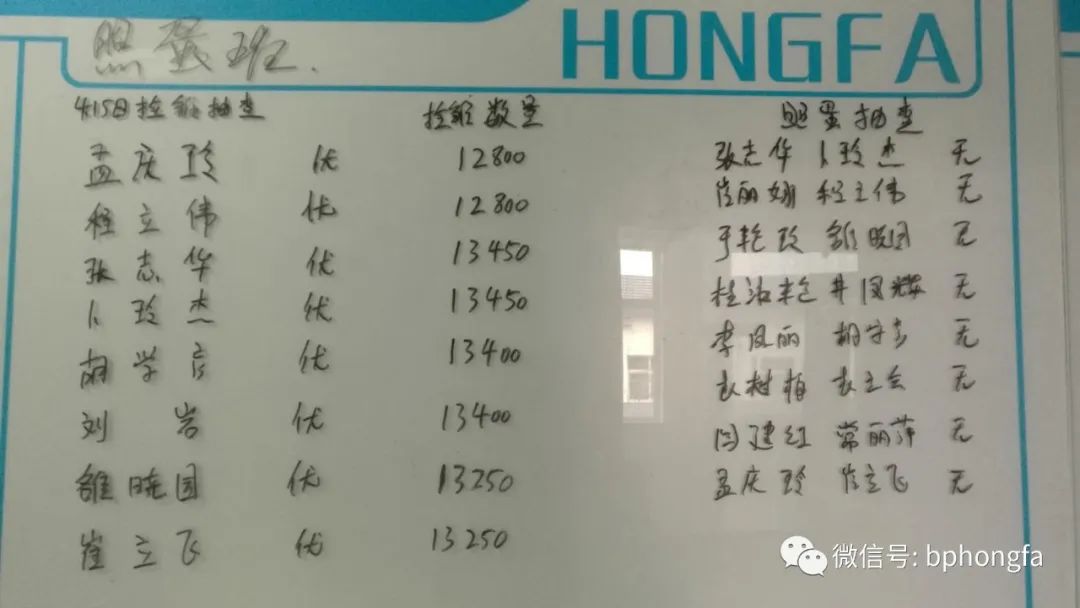 HONGFA
照蛋班.
4月15日捡雏抽查 捡雏数量 照蛋抽查
孟庆玲 优 12800
程立伟 优 12800
张志华 优 13450
卜玲杰 优 13450
胡学 优 13400
刘岩 优 13400
雒晓园 优 13250
崔立飞 优 13250
张志华 卜玲杰 无
肖丽娜 程立伟 无
于艳玫 雒晓园 无
桂淑艳 井凤辉 无
李凤丽 胡学 无
袁树梅 袁立会 无
闫建红 常丽萍 无
孟庆玲 崔立飞 无
微信号: bphongfa